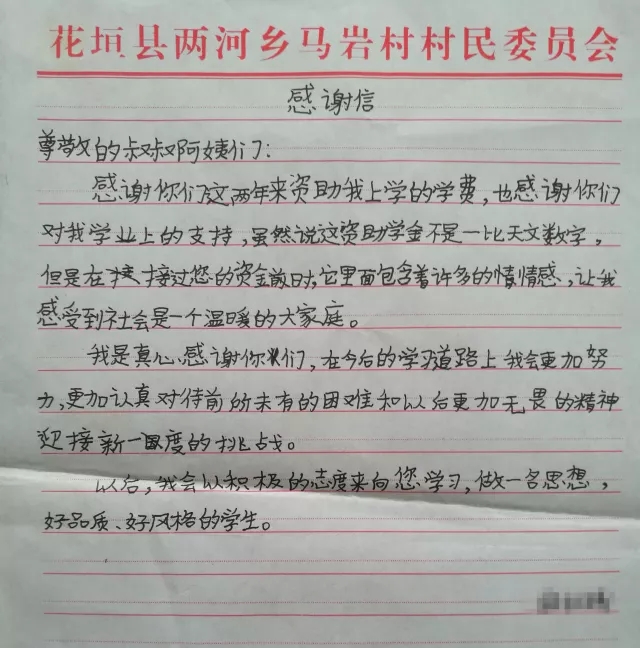 花垣县两河乡马岩村村民委员会
感谢信
尊敬的叔叔阿姨们:
感谢你们这两年来资助我上学的学费,也感谢你们
对我学业上的支持,虽然说这资助学金不是一比天文数字。
但是在接过您的资金前时,它里面包含着许多的情感,让我
感受到社会是一个温暖的大家庭。
我是真心感谢你们,在今后的学习道路上我会更加努
力,更加认真对待前所未有的困难和以后更加无畏的精神
迎接新一度的挑战。
以后,我会以积极的态度来向您学习,做一名思想,
好品质、好风格的学生。